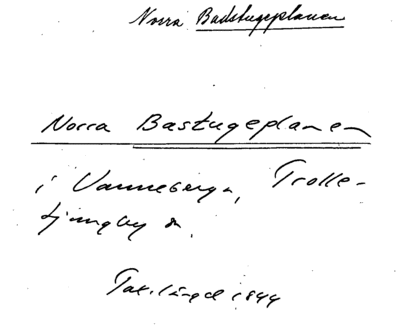 Norra Badstugeplanen
Norra Bastugeplanen
i Vanneberga, Trolle-
ljungby sn.
Tax.längd 1944